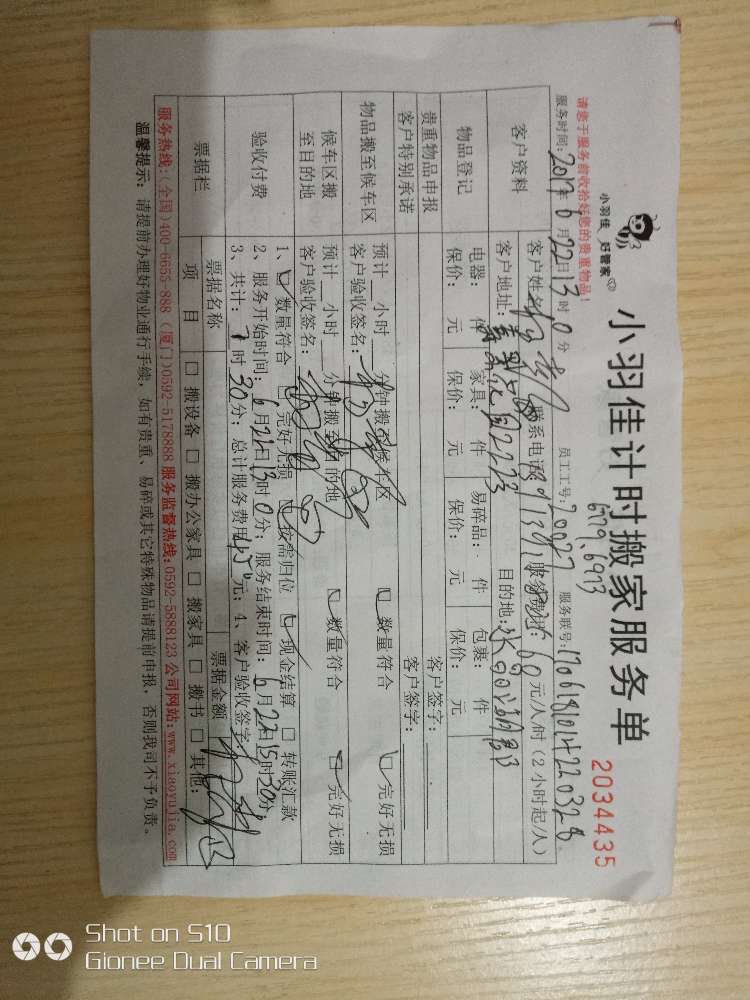 小羽佳 好管家
小羽佳计时搬家服务单
2034435
请您于服务前收拾好您的贵重物品!
服务时间: 2017年6月22日13时0分 员工工号: 20027 服务联号:
6979、6973
客户资料
客户姓名: 联系电话: 服务费达: 60元/人/时(2小时起/人)
客户地址: 目的地:
物品登记
电器: 件 家具: 件 易碎品: 件 包裹: 件
保价: 元 保价: 元 保价: 元 保价: 元
贵重物品申报 客户签字:
客户特别承诺 客户签字:
物品搬至候车区
预计 小时 分钟搬至候车区
客户验收签名: 数量符合 完好无损
候车区搬至目的地
预计 小时 分钟搬至目的地
客户验收签名: 数量符合 完好无损
验收付费
1、数量符合 完好无损 按需归位 现金结算 转账汇款
2、服务开始时间: 6月22日13时0分; 服务结束时间: 6月22日15时30分
3、共计: 时30分; 总计服务费用450元; 4、客户验收签字:
票据栏
票据名称 票据金额
项目 搬设备 搬办公家具 搬家具 搬书 其他:
服务热线:(全国)400-6655-888(厦门)0592-5178888 服务监督热线:0592-5888123 公司网站:www.xiaoyujia.com
温馨提示: 请提前办理好物业通行手续, 如有贵重、易碎或其它特殊物品请提前申报, 否则我司不予负责。
Shot on S10
Gionee Dual Camera